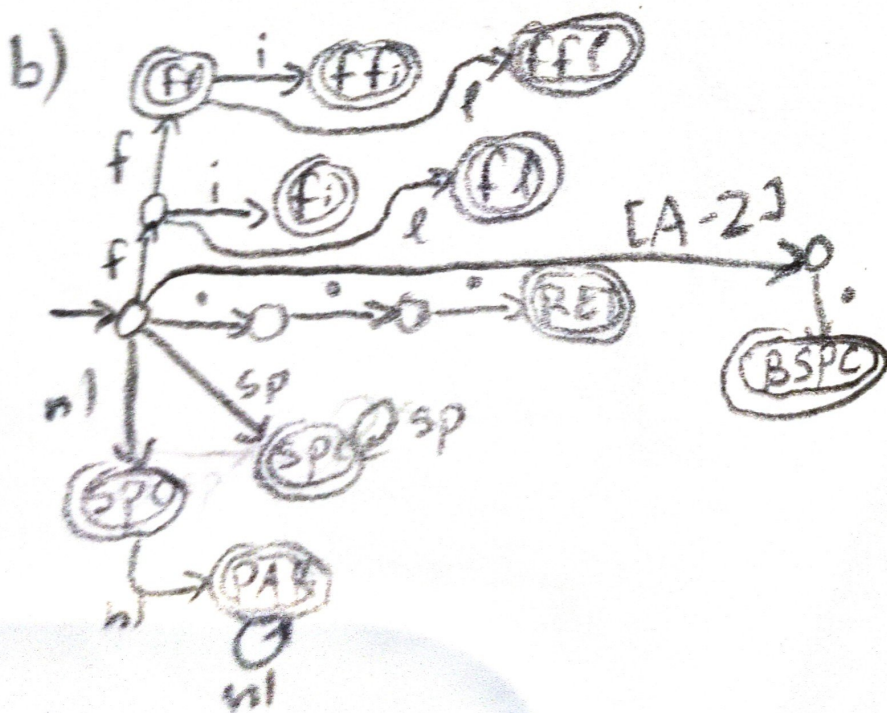 b)
ff i ffi ffl
l
f i fi fl
l
f [A-Z]
. . . RET .
BSPC
nl sp SPC sp
SPC
nl PAR
nl